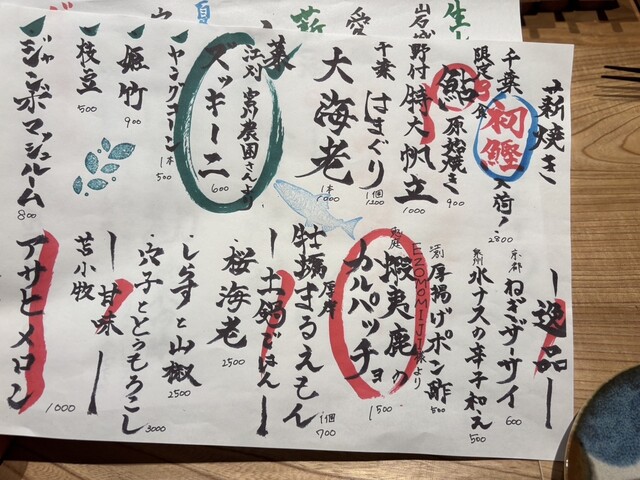 薪焼き
千葉 初鰹 入荷！ 2800
限定 3食
鮎 原始焼き 900
野付 特大帆立 1000
千葉 はまぐり 1個 1200
大海老 1本
菜
江刺 菊池農園さんより
ズッキーニ 600
ヤングコーン 1本 500
姫竹 900
枝豆 500
ジャンボマッシュルーム 800
逸品
京都 ねぎザーサイ 600
泉州 水ナスの辛子和え 500
厚揚げポン酢 500
EZOMOMIJI様より
蝦夷鹿のカルパッチョ 1500
厚岸
牡蠣まるえもん 1個 700
土鍋ごはん
桜海老 2500
しらすと山椒 2500
穴子ととうもろこし 3000
甘味
苫小牧
アサヒメロン 1000